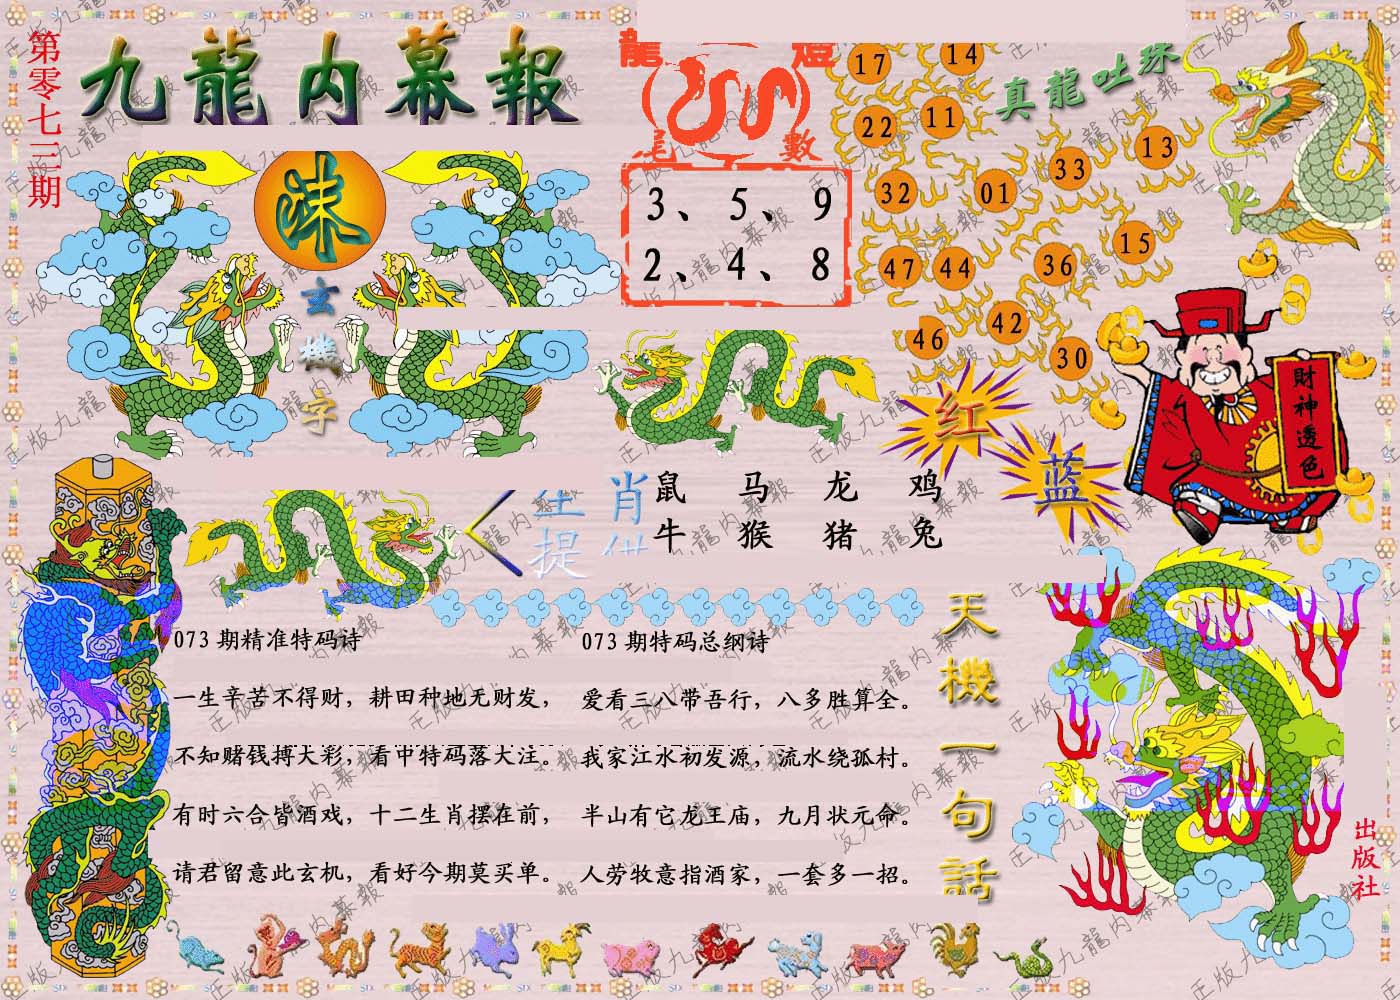 第零七三期
九龍内幕報
龍
尾數
3、5、9
2、4、8
真龍吐珠
17 14
22 11
13
33
32 01
15
36
47 44
42
46
30
玄機字
红
蓝
財神透色
生肖
提供
鼠 马 龙 鸡
牛 猴 猪 兔
073 期精准特码诗
一生辛苦不得财，耕田种地无财发，
不知赌钱搏大彩，看中特码落大注。
有时六合皆酒戏，十二生肖摆在前，
请君留意此玄机，看好今期莫买单。
073 期特码总纲诗
爱看三八带吾行，八多胜算全。
我家江水初发源，流水绕孤村。
半山有它龙王庙，九月状元命。
人劳牧意指酒家，一套多一招。
天機一句話
出版社
正版九龍内幕報